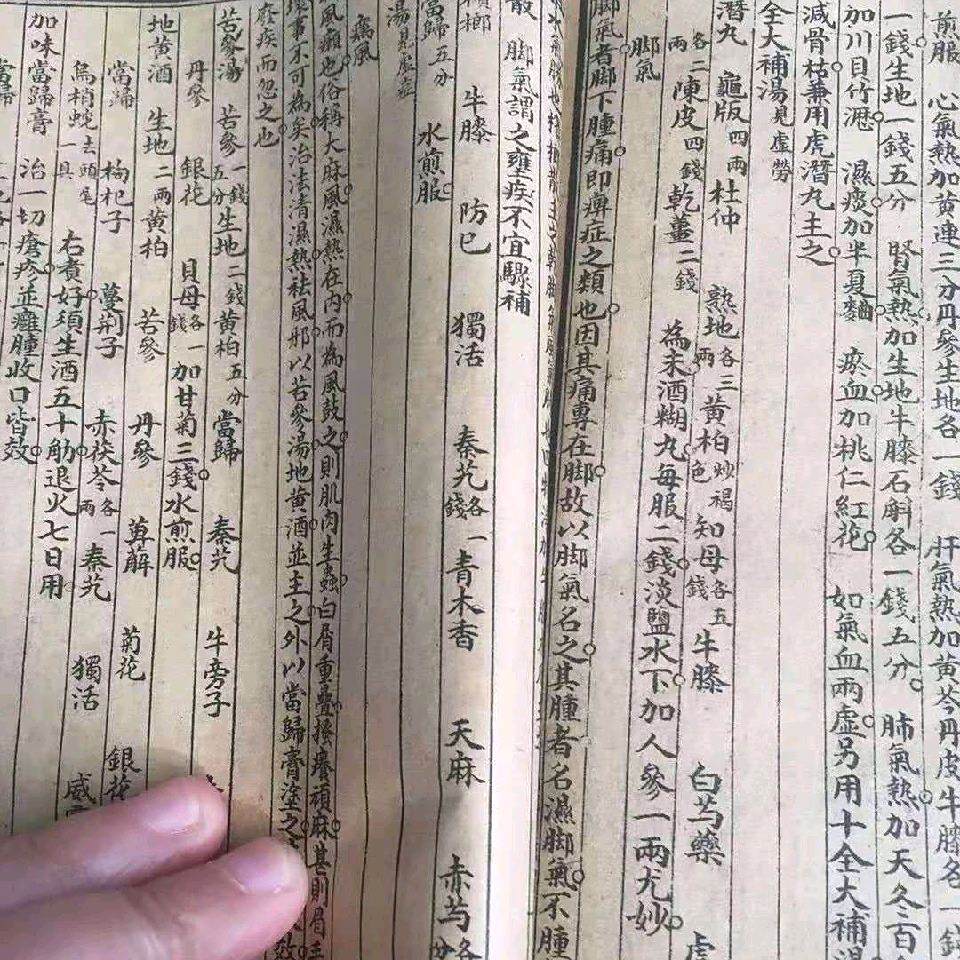 前服 心氣熱加黃連三分丹參生地各一錢 肝氣熱加黃芩丹皮牛膝各一錢
一錢生地一錢五分 腎氣熱加生地牛膝石斛各一錢五分 肺氣熱加天冬百
加川貝竹瀝 濕痰加半夏麯 瘀血加桃仁紅花 如氣血兩虛另用十全大補湯
減骨枯兼用虎潛丸主之
全大補湯見虛勞
潛丸 龜版四兩 杜仲 熟地各三兩 黃柏炒褐色 知母各五錢 牛膝 白芍藥 虎
各二兩 陳皮四錢 乾薑二錢 為末酒糊丸每服二錢淡鹽水下加人參一兩尤妙
脚氣
脚氣者脚下腫痛即痺症之類也因其痛專在脚故以脚氣名之其腫者名濕脚氣不腫
散 脚氣謂之壅疾不宜驟補
檳榔 牛膝 防已 獨活 秦艽各一錢 青木香 天麻 赤芍各
當歸五分 水煎服
湯見虛症
癘風
風癩也俗稱大麻風濕熱在内而為風鼓之則肌肉生蟲白屑重疊搔癢頑麻甚則眉
壞事不可為矣治法清濕熱祛風邪以苦參湯地黃酒並主之外以當歸膏塗之
廢疾而忽之也
苦參湯 苦參一錢五分 生地二錢 黃柏五分 當歸 秦艽 牛旁子
丹參 銀花 貝母各一錢 加甘菊三錢水煎服
地黃酒 生地二兩 黃柏 苦參 丹參 萆薢 菊花 銀花
當歸 枸杞子 蔓荆子 赤茯苓各一兩 秦艽 獨活 威
烏梢蛇去頭尾一具 右煮好湏生酒五十觔退火七日用
加味當歸膏 治一切瘡疹並癰腫收口皆效
當歸